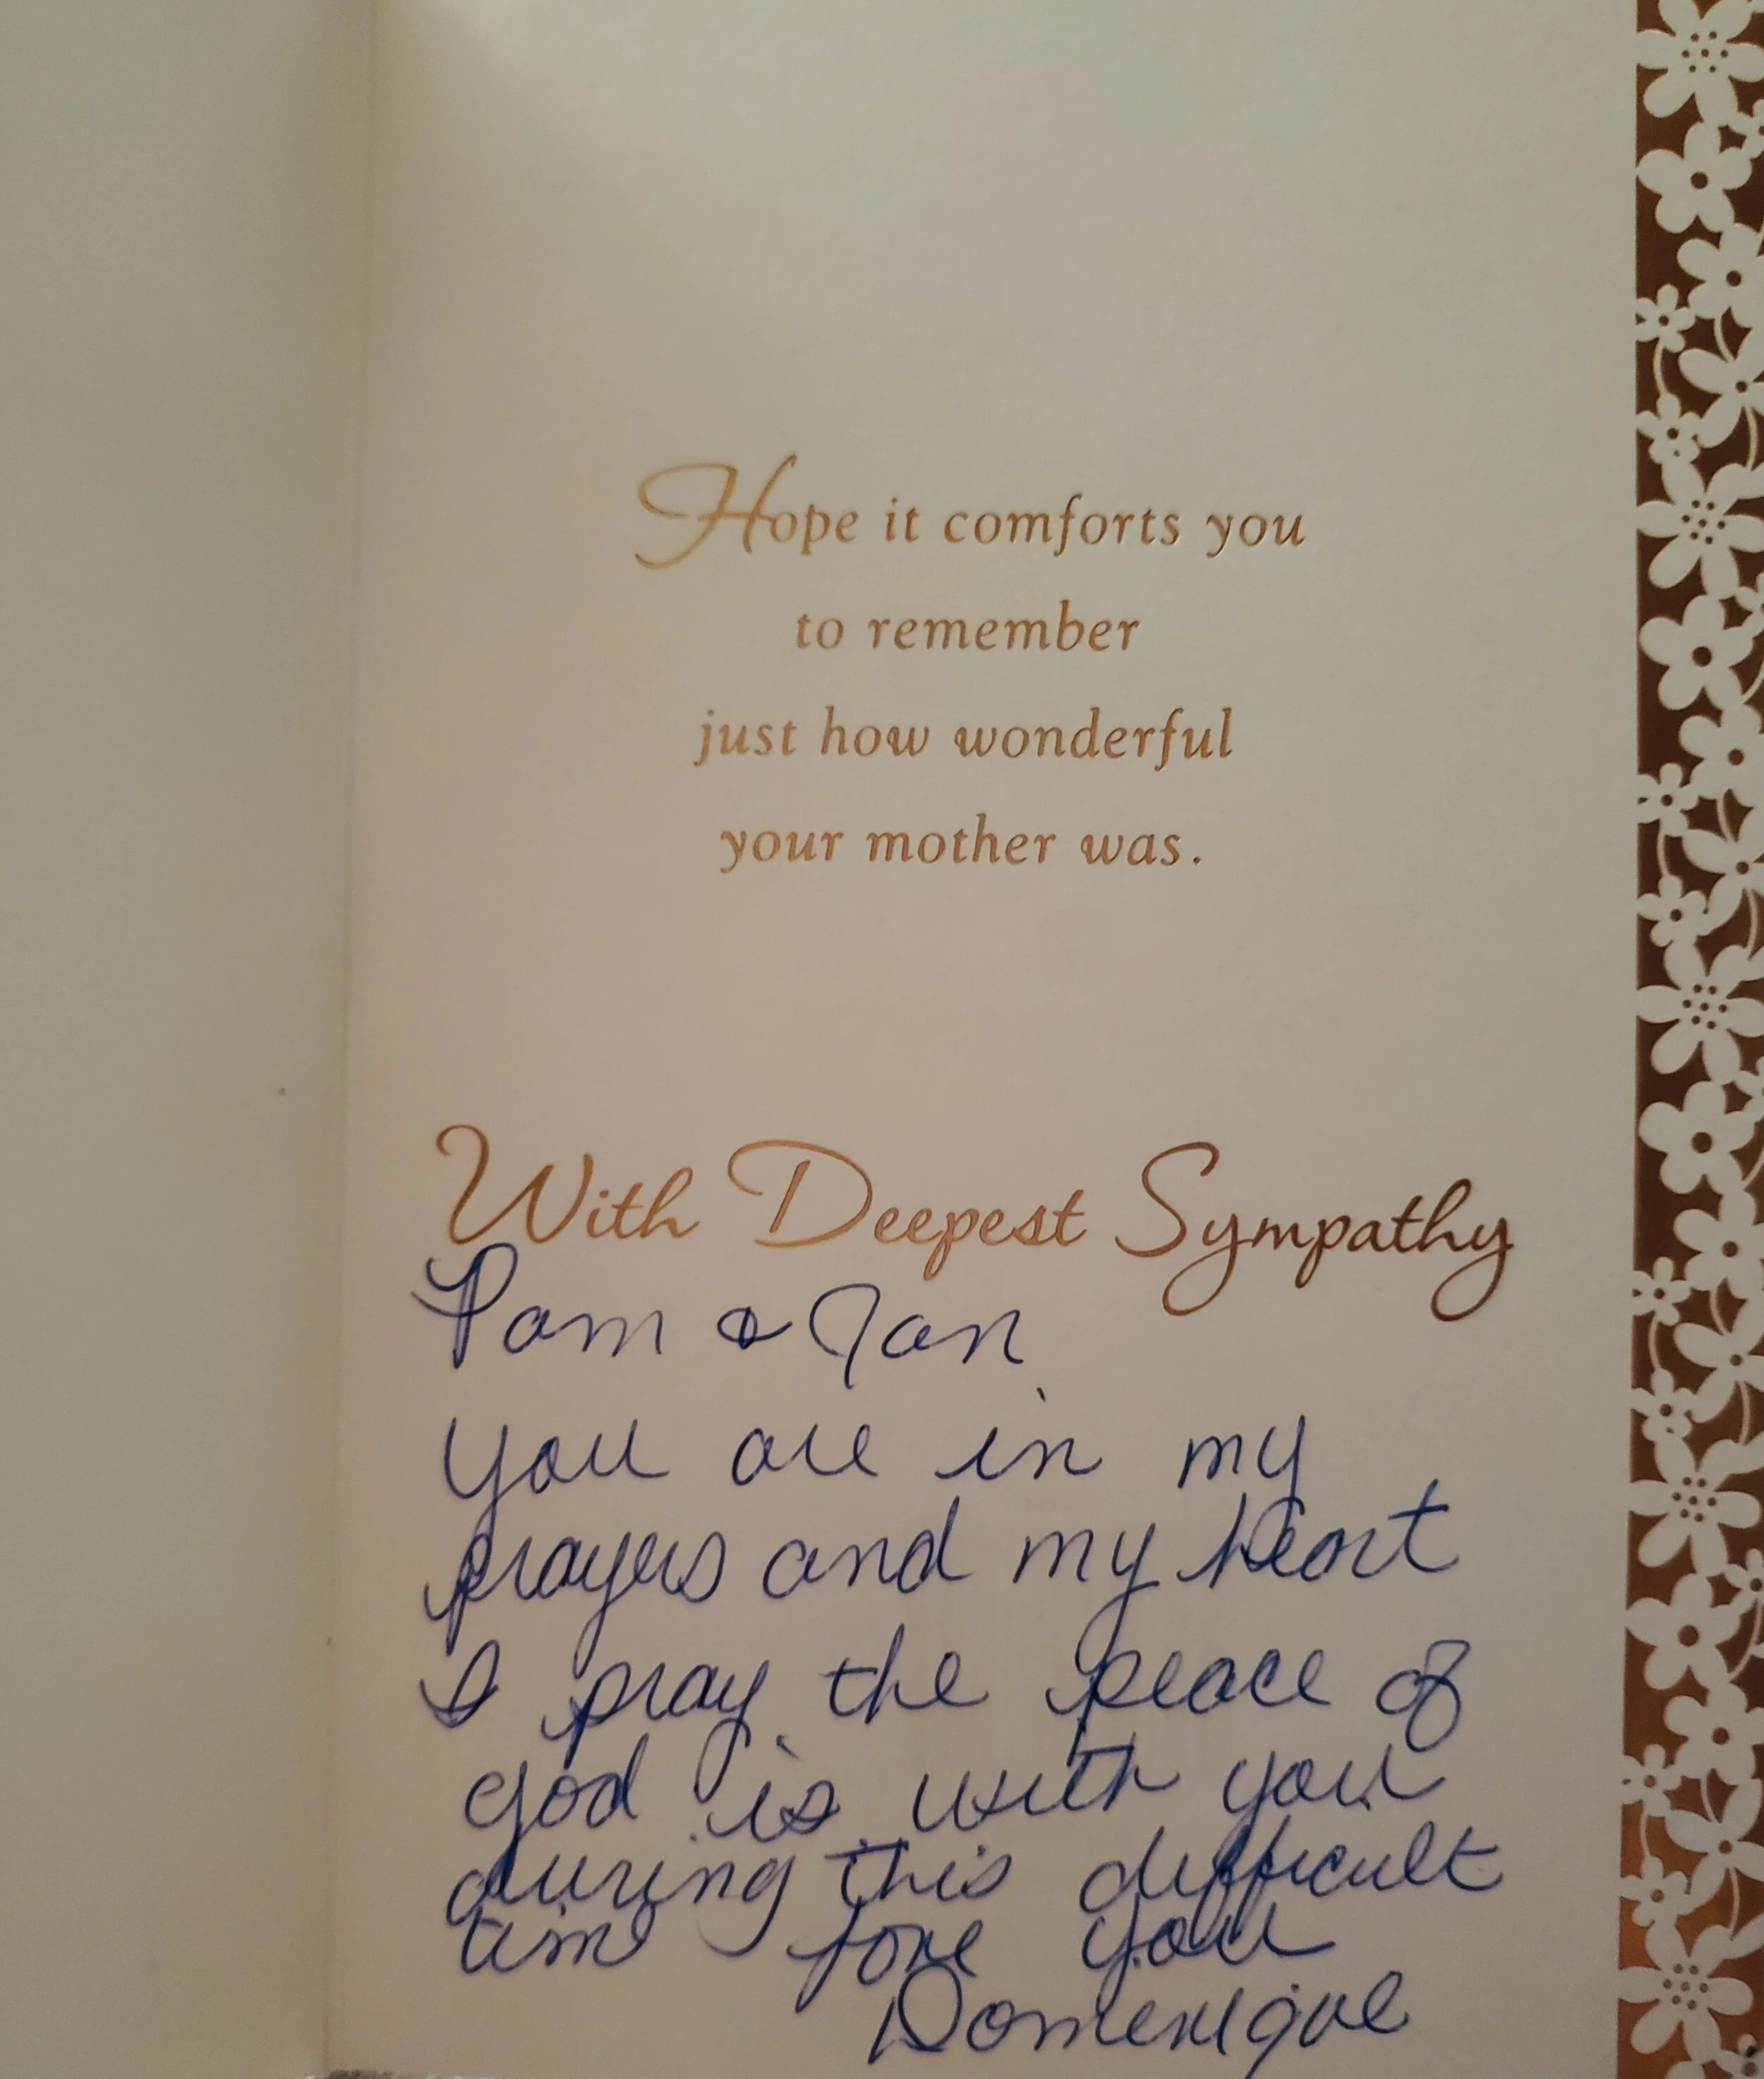 Hope it comforts you
to remember
just how wonderful
your mother was.
With Deepest Sympathy
Pam & Jan
you are in my
prayers and my heart
I pray the peace of
god is with you
during this difficult
time love you
Domenique